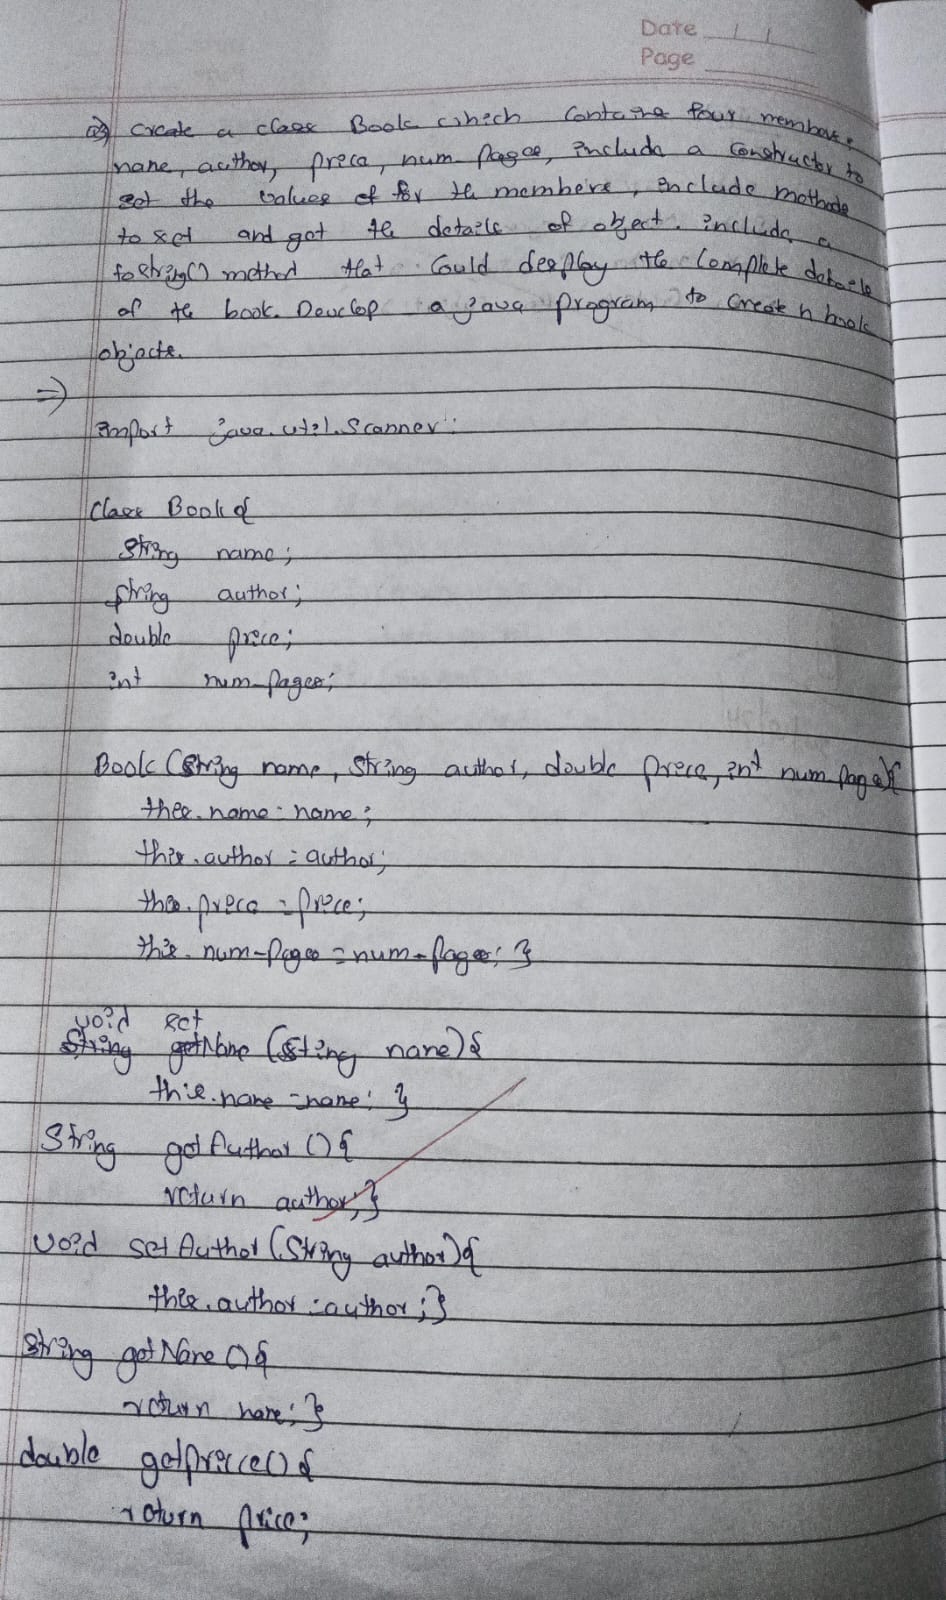 Date / /
Page
Q3) Create a class Book which contains four members,
name, author, price, num-pages, include a constructor to
set the values of for the members, include methods
to set and get the details of object. include a
toString() method that could display the complete details
of the book. Develop a java program to create n book
objects.
=>
import java.util.Scanner;
class Book {
String name;
String author;
double price;
int num-pages;
Book (String name, String author, double price, int num-pages){
this.name = name;
this.author = author;
this.price = price;
this.num-pages = num-pages; }
void set
String getName (String name){
this.name = name; }
String getAuthor () {
return author; }
void setAuthor (String author){
this.author = author; }
String getName () {
return name; }
double getPrice() {
return price;